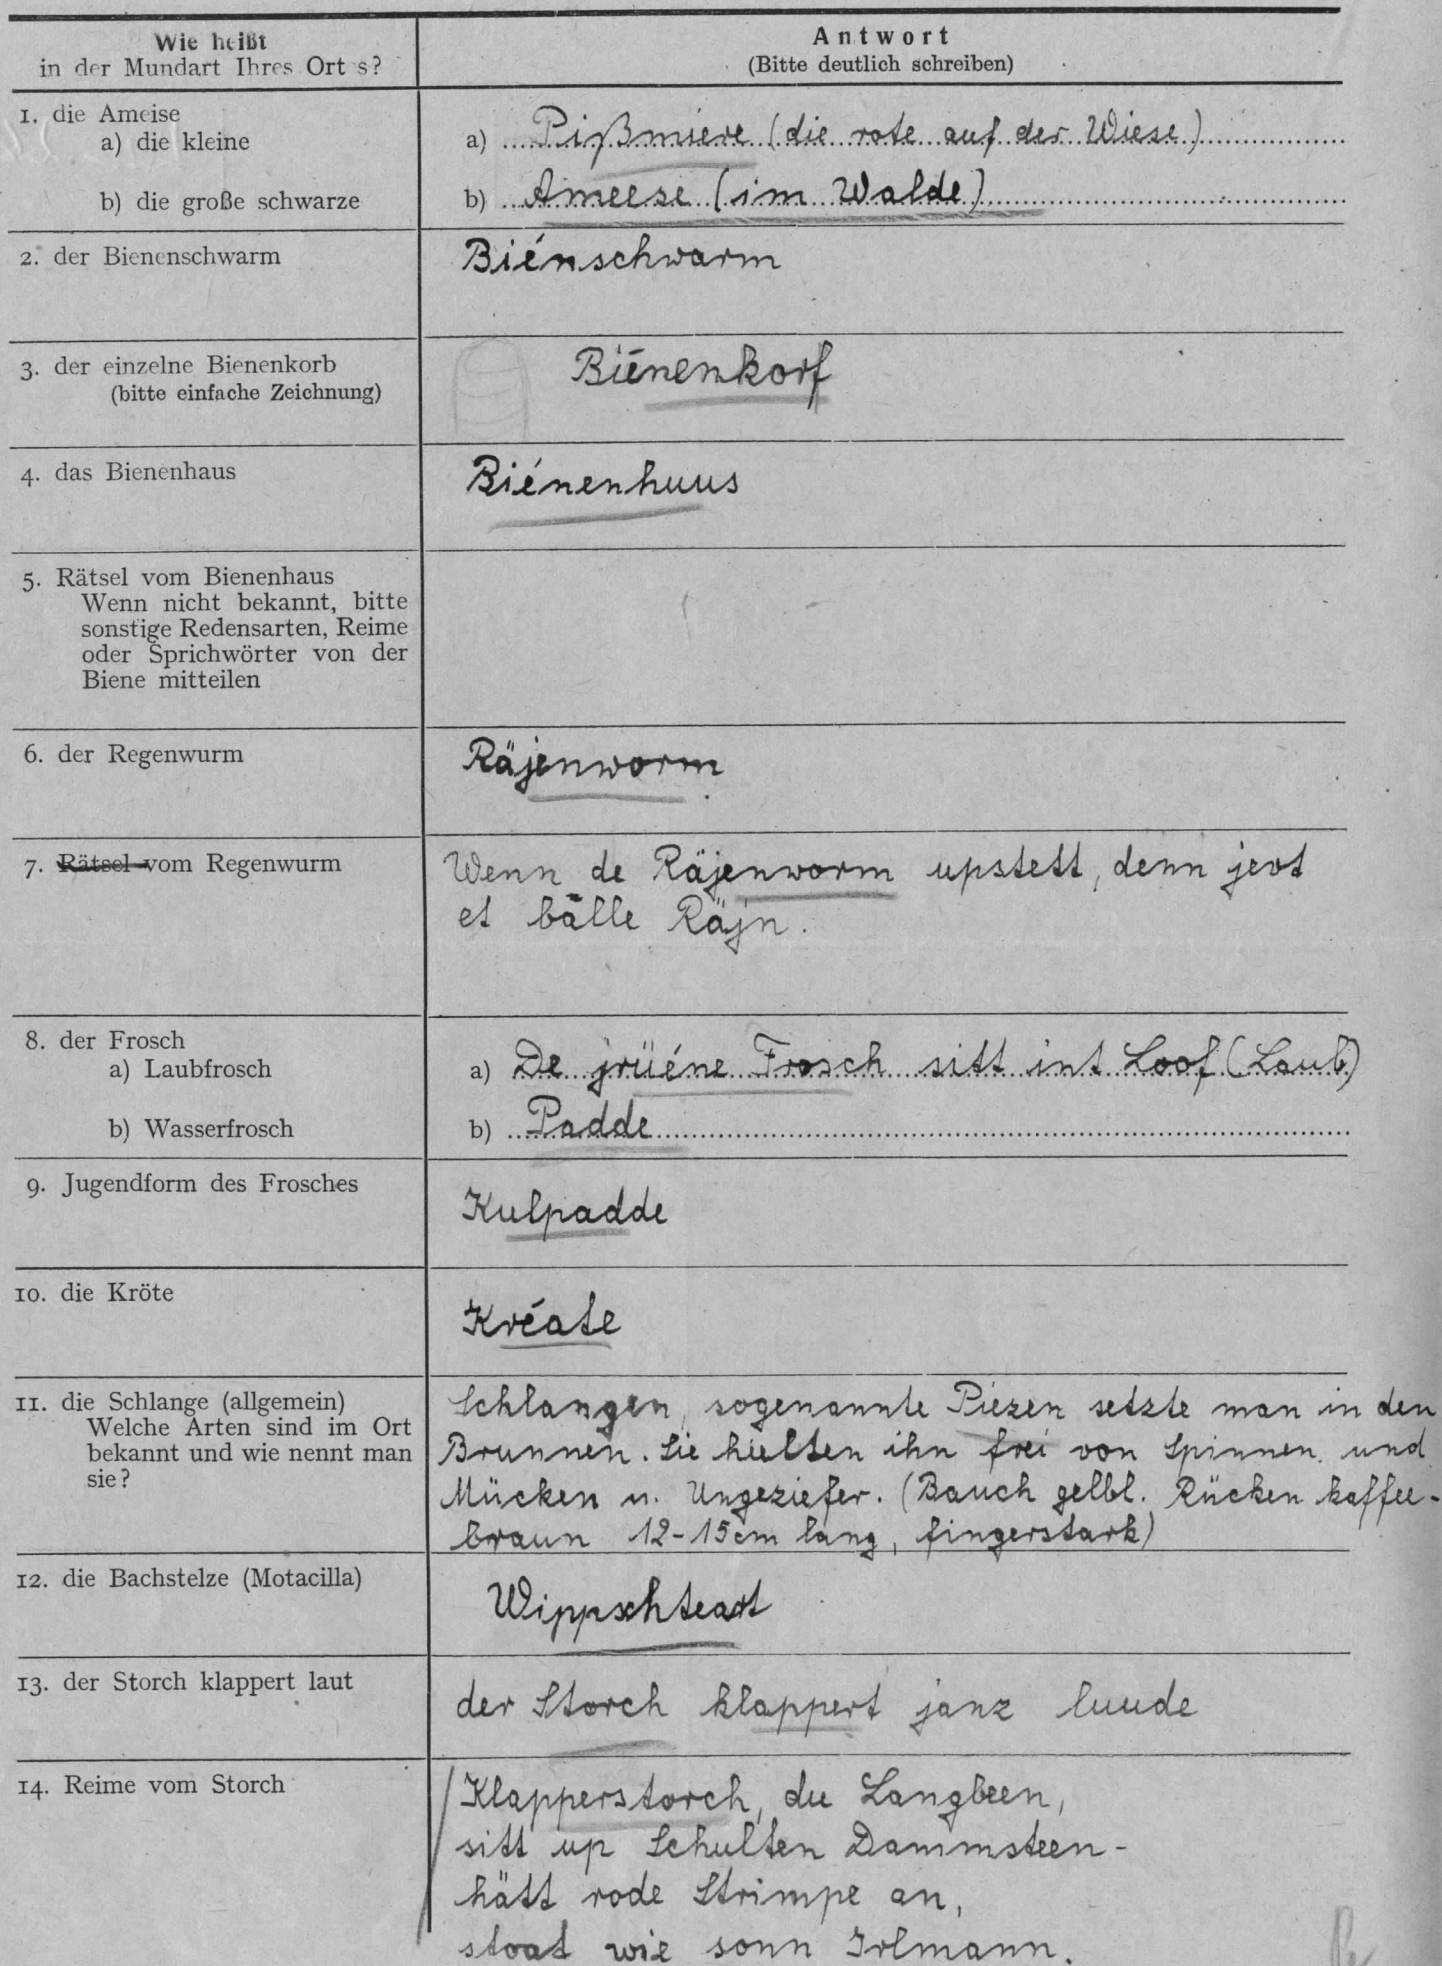 Wie heißt
in der Mundart Ihres Ort s?
Antwort
(Bitte deutlich schreiben)
1. die Ameise
a) die kleine
a) Pißmiere (die rote auf der Wiese)
b) die große schwarze
b) Ameese (im Walde)
2. der Bienenschwarm
Biénschwarm
3. der einzelne Bienenkorb
(bitte einfache Zeichnung)
Biénenkorf
4. das Bienenhaus
Biénenhuus
5. Rätsel vom Bienenhaus
Wenn nicht bekannt, bitte
sonstige Redensarten, Reime
oder Sprichwörter von der
Biene mitteilen
6. der Regenwurm
Räjenworm
7. Rätsel vom Regenwurm
Wenn de Räjenworm upstett, denn jevt
et bälle Räjn.
8. der Frosch
a) Laubfrosch
a) De jrüéne Frosch sitt int Loof (Laub)
b) Wasserfrosch
b) Padde
9. Jugendform des Frosches
Kulpadde
10. die Kröte
Kréate
11. die Schlange (allgemein)
Welche Arten sind im Ort
bekannt und wie nennt man
sie?
Schlangen, sogenannte Piezen setzte man in den
Brunnen. Sie hielten ihn frei von Spinnen und
Mücken u. Ungeziefer. (Bauch gelbl. Rücken kaffee-
braun 12-15cm lang, fingerstark)
12. die Bachstelze (Motacilla)
Wippschteart
13. der Storch klappert laut
der Storch klappert janz luude
14. Reime vom Storch
Klapperstorch, du Langbeen,
sitt up Schulten Dammsteen-
hätt rode Strimpe an,
stoat wie sonn Irlmann.